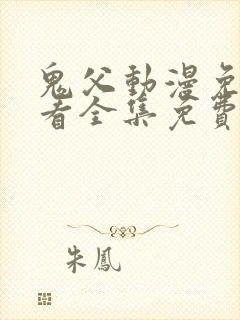 鬼父動漫免
看全集免費
朱鳳